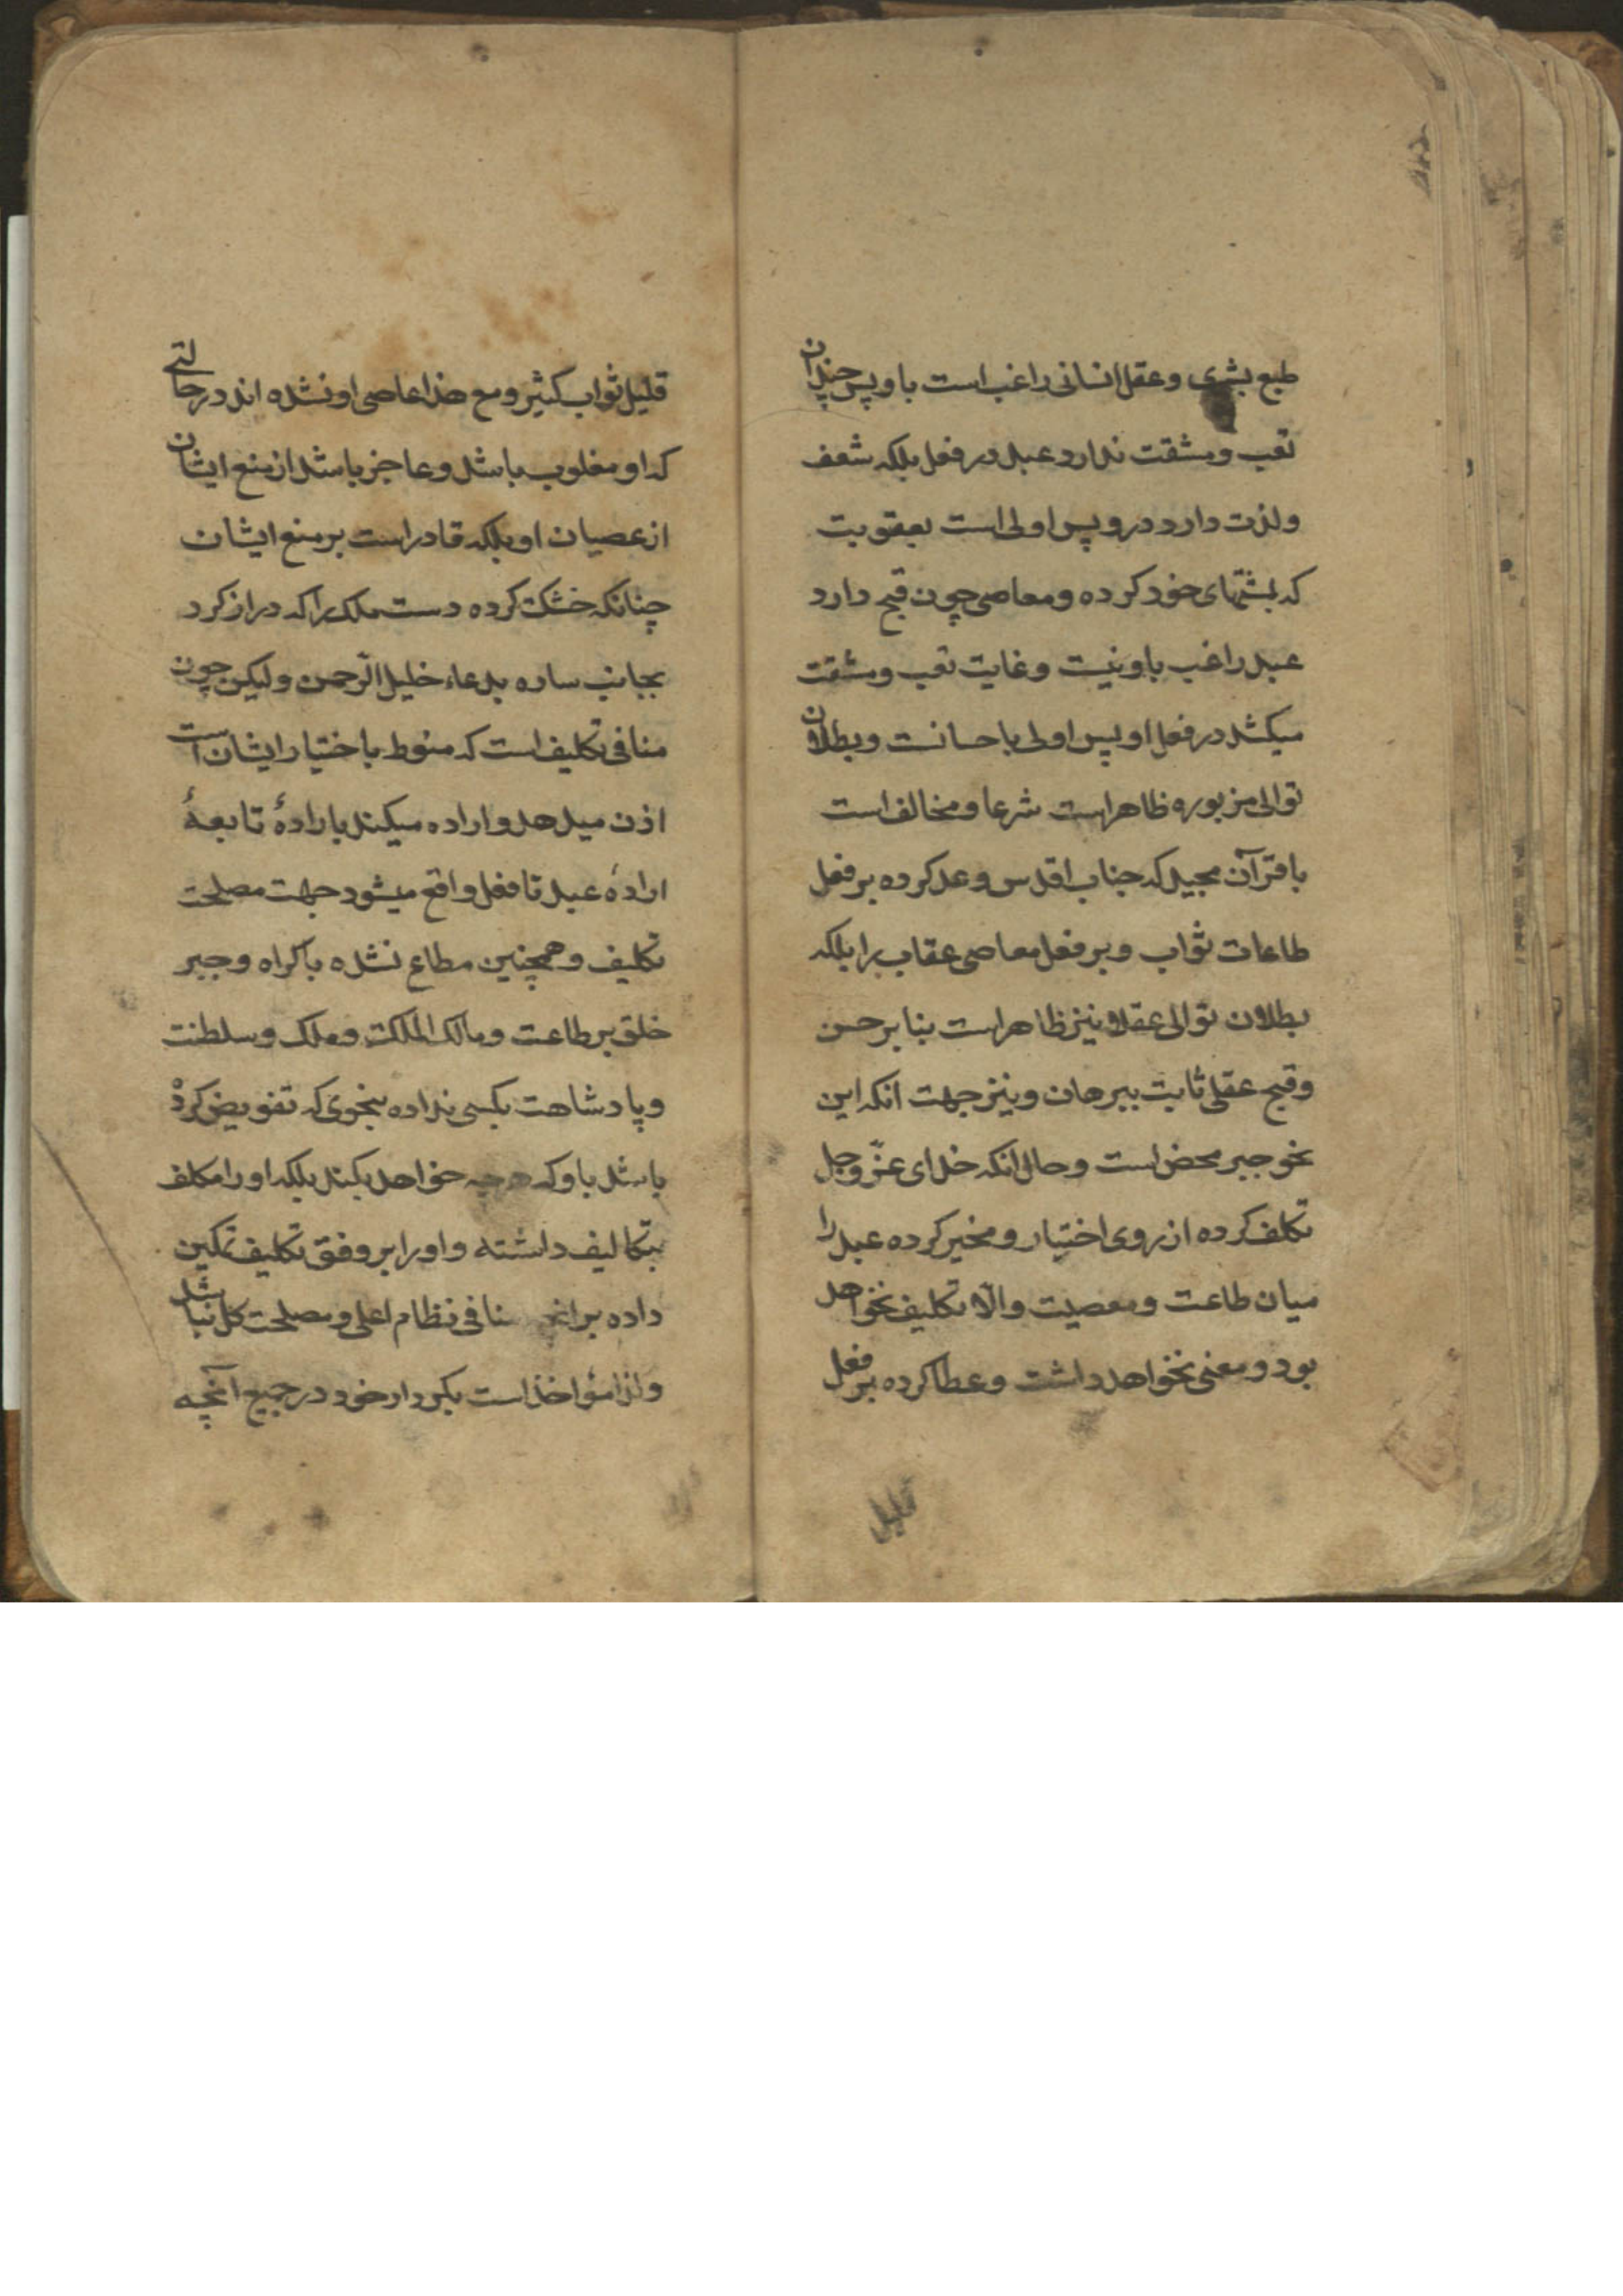 طبع بشری و عقل انسانی راغب است باو پس چندان
تعب و مشقت ندارد عبد در فعل بلکه شعف
و لذت دارد درو پس اولی است بعقوبت
که بمشتهای خود کرده و معاصی چون قبح دارد
عبد راغب باو نیست و غایت تعب و مشقت
میکشد در فعل او پس اولی باحسانست و بطلان
توالی مزبوره ظاهر است شرعا و مخالف است
با قرآن مجید که جناب اقدس وعد کرده بر فعل
طاعات ثواب و بر فعل معاصی عقاب را بلکه
بطلان توالی عقلا نیز ظاهر است بنا بر حسن
و قبح عقلی ثابت ببرهان و نیز جهت انکه این
نحو جبر محض است و حال انکه خدای عزّ و جل
تکلف کرده از روی اختیار و مخیر کرده عبد را
میان طاعت و معصیت و الّا تکلیف نخواهد
بود و معنی نخواهد داشت و عطا کرده بر فعل
قلیل
قلیل ثواب کثیر و مع هذا عاصی او نشده اند در حالتے
که او مغلوب باشد و عاجز باشد از منع ایشان
از عصیان او بلکه قادر است بر منع ایشان
چنانکه خشک کرده دست ملک را که دراز کرد
بجانب ساره بدعاء خلیل الرّحمن و لیکن چون
منافی تکلیف است که منوط باختیار ایشان است
اذن میدهد و اراده میکند بارادهٔ تابعهٔ
ارادهٔ عبد تا فعل واقع میشود جهت مصلحت
تکلیف و همچنین مطاع نشده باکراه و جبر
خلق بر طاعت و مالک الملکت و ملک و سلطنت
و پادشاهت بکسی نداده بنحوی که تفویض کرد
باشد باو که هرچه خواهد بکند بلکه او را مکلف
بتکالیف داشته و او را بر وفق تکلیف تمکین
داده بر انچه منافی نظام اعلی و مصلحت کل نباشد
و لذا مؤاخذ است بکردار خود در جمیع آنچه